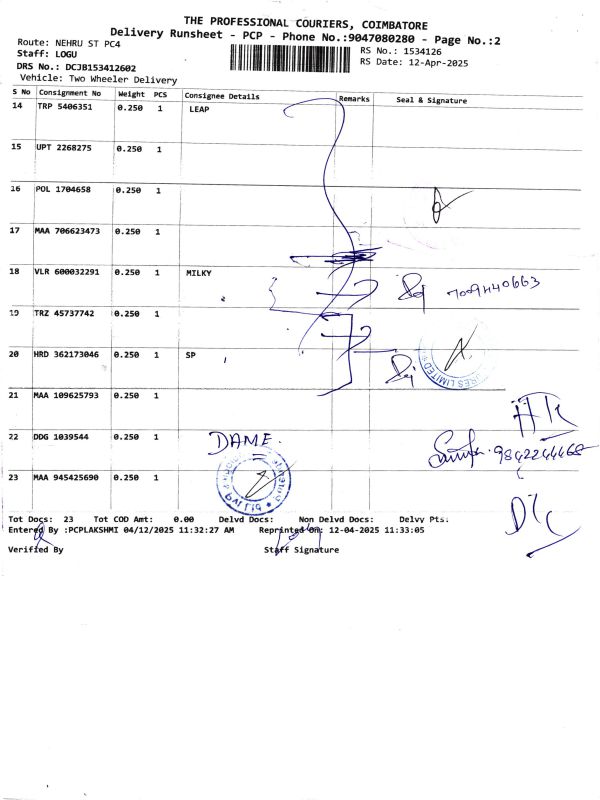 THE PROFESSIONAL COURIERS, COIMBATORE
Delivery Runsheet - PCP - Phone No.:9047080280 - Page No.:2
Route: NEHRU ST PC4
RS No.: 1534126
Staff: LOGU
RS Date: 12-Apr-2025
DRS No.: DCJB153412602
Vehicle: Two Wheeler Delivery
S No Consignment No Weight PCS Consignee Details Remarks Seal & Signature
14 TRP 5406351 0.250 1 LEAP
15 UPT 2268275 0.250 1
16 POL 1704658 0.250 1
17 MAA 706623473 0.250 1
18 VLR 600032291 0.250 1 MILKY
7094440663
19 TRZ 45737742 0.250 1
20 HRD 362173046 0.250 1 SP
URES LIMITED
21 MAA 109625793 0.250 1
22 DDG 1039544 0.250 1 DAME.
9842244468
23 MAA 945425690 0.250 1
Tot Docs: 23 Tot COD Amt: 0.00 Delvd Docs: Non Delvd Docs: Delvy Pts:
Entered By :PCPLAKSHMI 04/12/2025 11:32:27 AM Reprinted On: 12-04-2025 11:33:05
Verified By Staff Signature